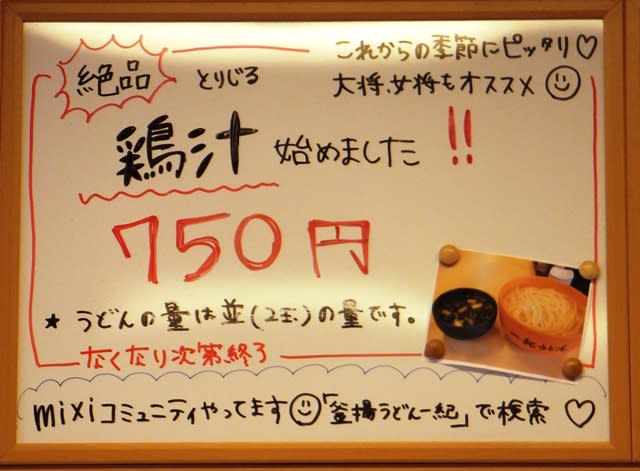 これからの季節にピッタリ♡
絶品 とりじる 大将、女将もオススメ
鶏汁 始めました!!
750円
★ うどんの量は並(2玉)の量です。
なくなり次第終了
mixiコミュニティやってます「釜揚うどん一紀」で検索♡